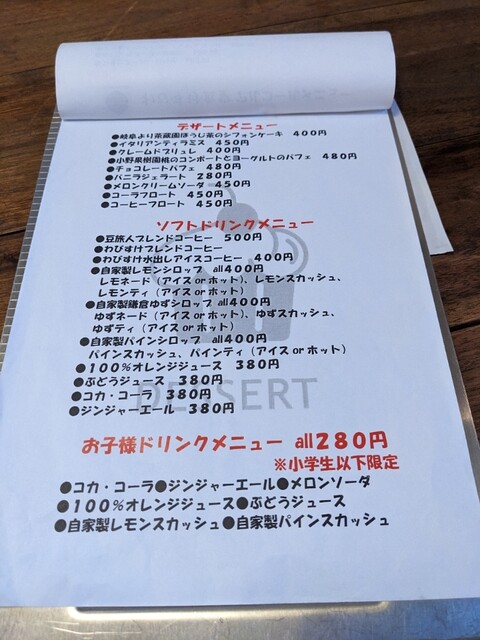 デザートメニュー
●岐阜より茶蔵園ほうじ茶のシフォンケーキ 400円
●イタリアンティラミス 450円
●クレームドブリュレ 400円
●小野果樹園桃のコンポートとヨーグルトのパフェ 480円
●チョコレートパフェ 480円
●バニラジェラート 280円
●メロンクリームソーダ 450円
●コーラフロート 450円
●コーヒーフロート 450円
ソフトドリンクメニュー
●豆旅人ブレンドコーヒー 500円
●わびすけブレンドコーヒー
●わびすけ水出しアイスコーヒー 400円
●自家製レモンシロップ all400円
レモネード（アイスorホット）、レモンスカッシュ、
レモンティ（アイスorホット）
●自家製鎌倉ゆずシロップ all400円
ゆずネード（アイスorホット）、ゆずスカッシュ、
ゆずティ（アイスorホット）
●自家製パインシロップ all400円
パインスカッシュ、パインティ（アイスorホット）
●100％オレンジジュース 380円
●ぶどうジュース 380円
●コカ・コーラ 380円
●ジンジャーエール 380円
DESSERT
お子様ドリンクメニュー all280円
※小学生以下限定
●コカ・コーラ●ジンジャーエール●メロンソーダ
●100％オレンジジュース●ぶどうジュース
●自家製レモンスカッシュ●自家製パインスカッシュ